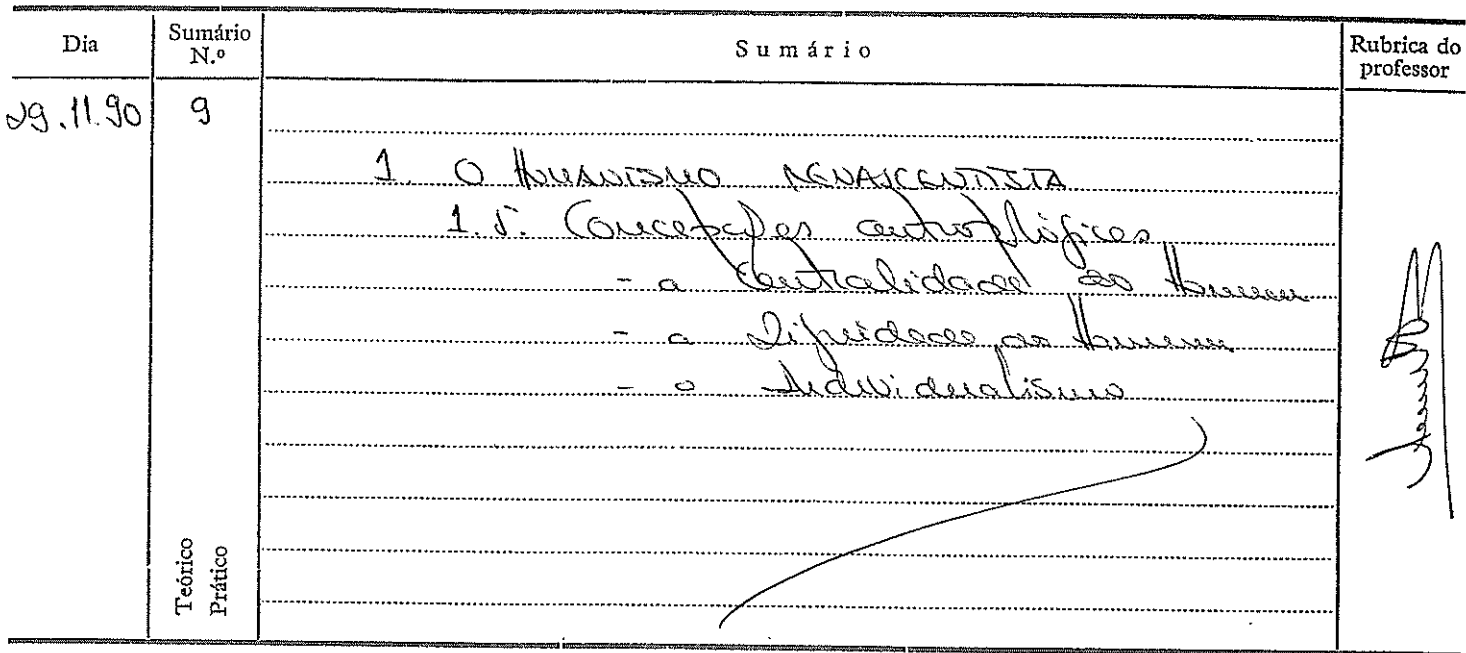 Dia Sumário N.º Sumário Rubrica do professor
29.11.90 9
1. O Humanismo RENASCENTISTA
1.5. Concepções antropológicas
- a Centralidade do Homem
- a Dignidade do Homem
- o Individualismo
Teórico
Prático